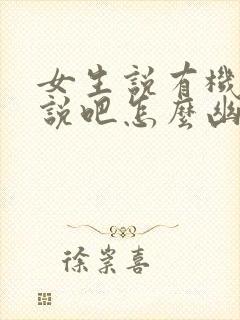 女生說有機
說吧怎麼幽
徐崇喜